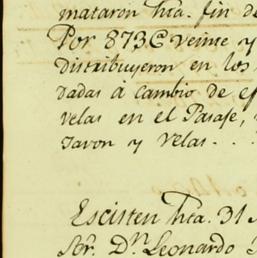 mataron hta. fin de
Por 873@ veinte y
distribuyeron en los
dadas à cambio de ef
velas en el Pasaje,
Javon y velas...
Escisten hta. 31
Sõr. Dn. Leonardo